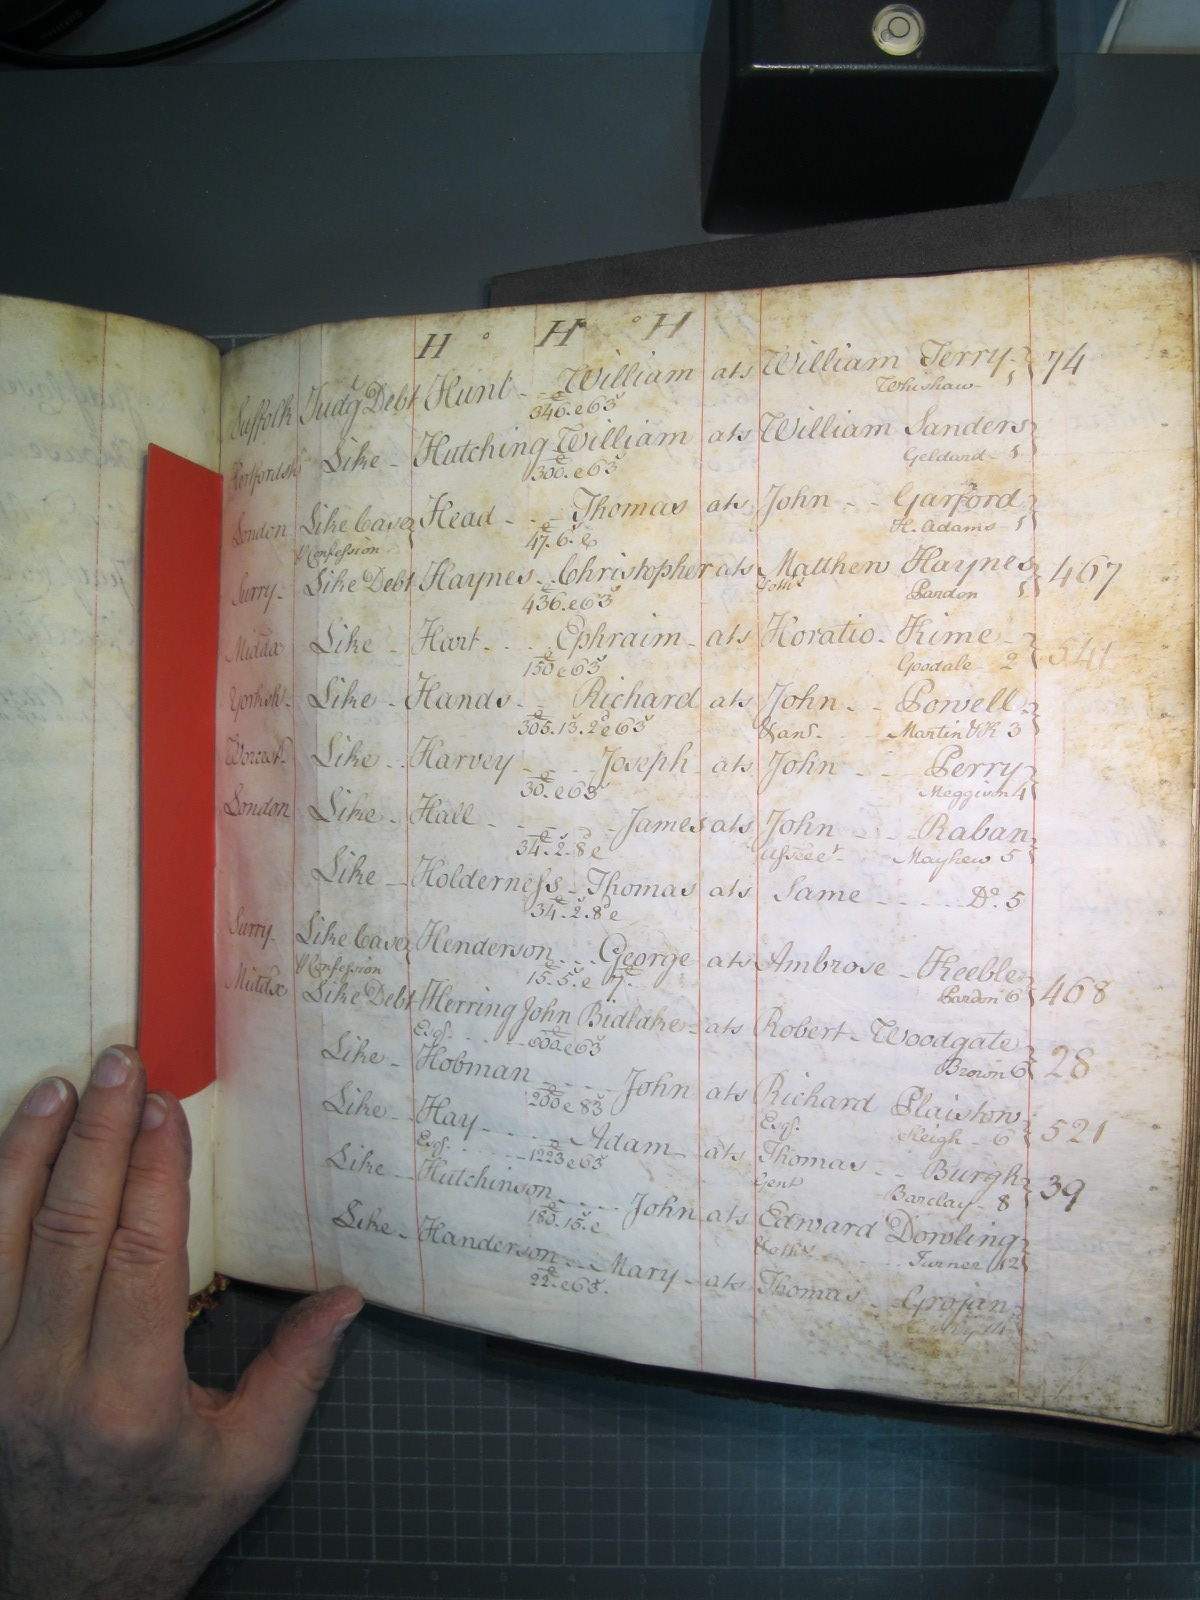 H ° H ° H
Suffolk Judg Debt Hunt - - William ats William Terry 74
346. e 63s Whishaw - 1
Hertfordsh Like - Hutching William ats William Sanders
300. e 63s Geldard - 1
London Like Case Head - - - Thomas ats John - - Garford
P Confession 47. 6. e H. Adams - 1
Surry - Like Debt Haynes - - Christopher ats Matthew Haynes 467
436. e 63s Pardon 1
Middx Like - Hart - . - Ephraim - ats Horatio - Kime - 541
150 e 63s Goodale - 2
Yorksh - Like - Hands - Richard ats John - - Powell
305. 13. 2 e 63s Martin & K 3
Worcest - Like - . Harvey - - - Joseph ats John - - Perry
30. e 63s Meggison 4
London Like - Hall - - - - James ats John - - - Raban
34. 2. 8 e Mayhew 5
Like - Holderness - Thomas ats Same - - - - Do. 5
34. 2. 8 e
Surry - Like Case Henderson - . . George ats Ambrose - Keeble 468
P Confession 15. 5. e Pardon 6
Middx Like Debt Herring John Bidlake - ats Robert - Woodgate 28
Esqr. - - - - 600 e 63 Brown 6
Like - Hobman - - - - John ats Richard Plaistow 521
200 e 83 Esqr. Sleigh - 6
Like - Hay - - - - Adam ats Thomas - - Burgh 39
Esqr. - - - 1223 e 63 Gent Barclay - 8
Like - Hutchinson - - - John ats Edward Dowling
180. 15. e Turner 12
Like - Handerson - - - Mary - ats Thomas - Grojan
22. e 63s.